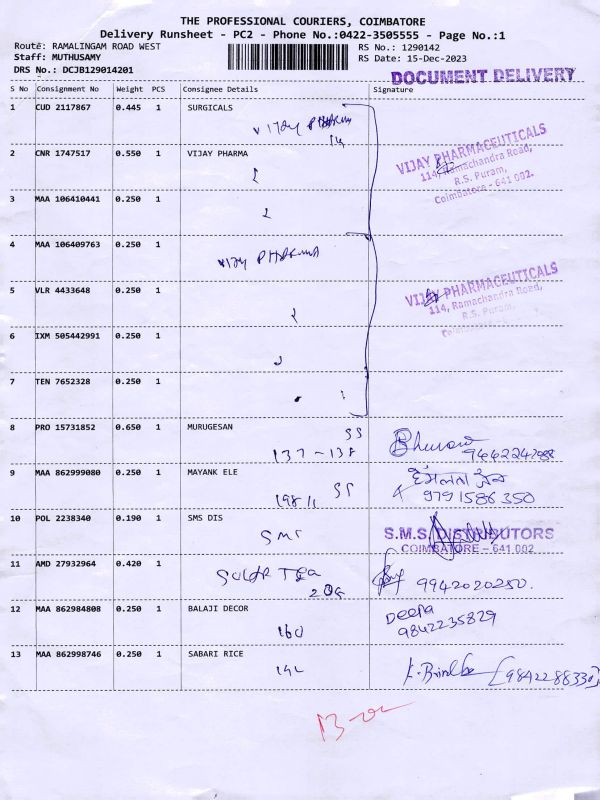 THE PROFESSIONAL COURIERS, COIMBATORE
Delivery Runsheet - PC2 - Phone No.:0422-3505555 - Page No.:1
Route: RAMALINGAM ROAD WEST
RS No.: 1290142
Staff: MUTHUSAMY
RS Date: 15-Dec-2023
DRS No.: DCJB129014201
DOCUMENT DELIVERY
S No Consignment No Weight PCS Consignee Details Signature
1 CUD 2117867 0.445 1 SURGICALS
Vijay PHARMA
2 CNR 1747517 0.550 1 VIJAY PHARMA
VIJAY PHARMACEUTICALS
114, Ramachandra Road,
R.S. Puram,
Coimbatore - 641 002.
3 MAA 106410441 0.250 1
4 MAA 106409763 0.250 1
Vijay PHARMA
5 VLR 4433648 0.250 1
VIJAY PHARMACEUTICALS
114, Ramachandra Road,
R.S. Puram,
Coimbatore
6 IXM 505442991 0.250 1
7 TEN 7652328 0.250 1
8 PRO 15731852 0.650 1 MURUGESAN
SS
137-138
9 MAA 862999080 0.250 1 MAYANK ELE
198 11 SS
9791586350
10 POL 2238340 0.190 1 SMS DIS
SMS
S.M.S. DISTRIBUTORS
COIMBATORE - 641 002
11 AMD 27932964 0.420 1
SOLAR TEA
206
9942020250.
12 MAA 862984808 0.250 1 BALAJI DECOR
160
Deepa
9842235829
13 MAA 862998746 0.250 1 SABARI RICE
[9842288330]
13-